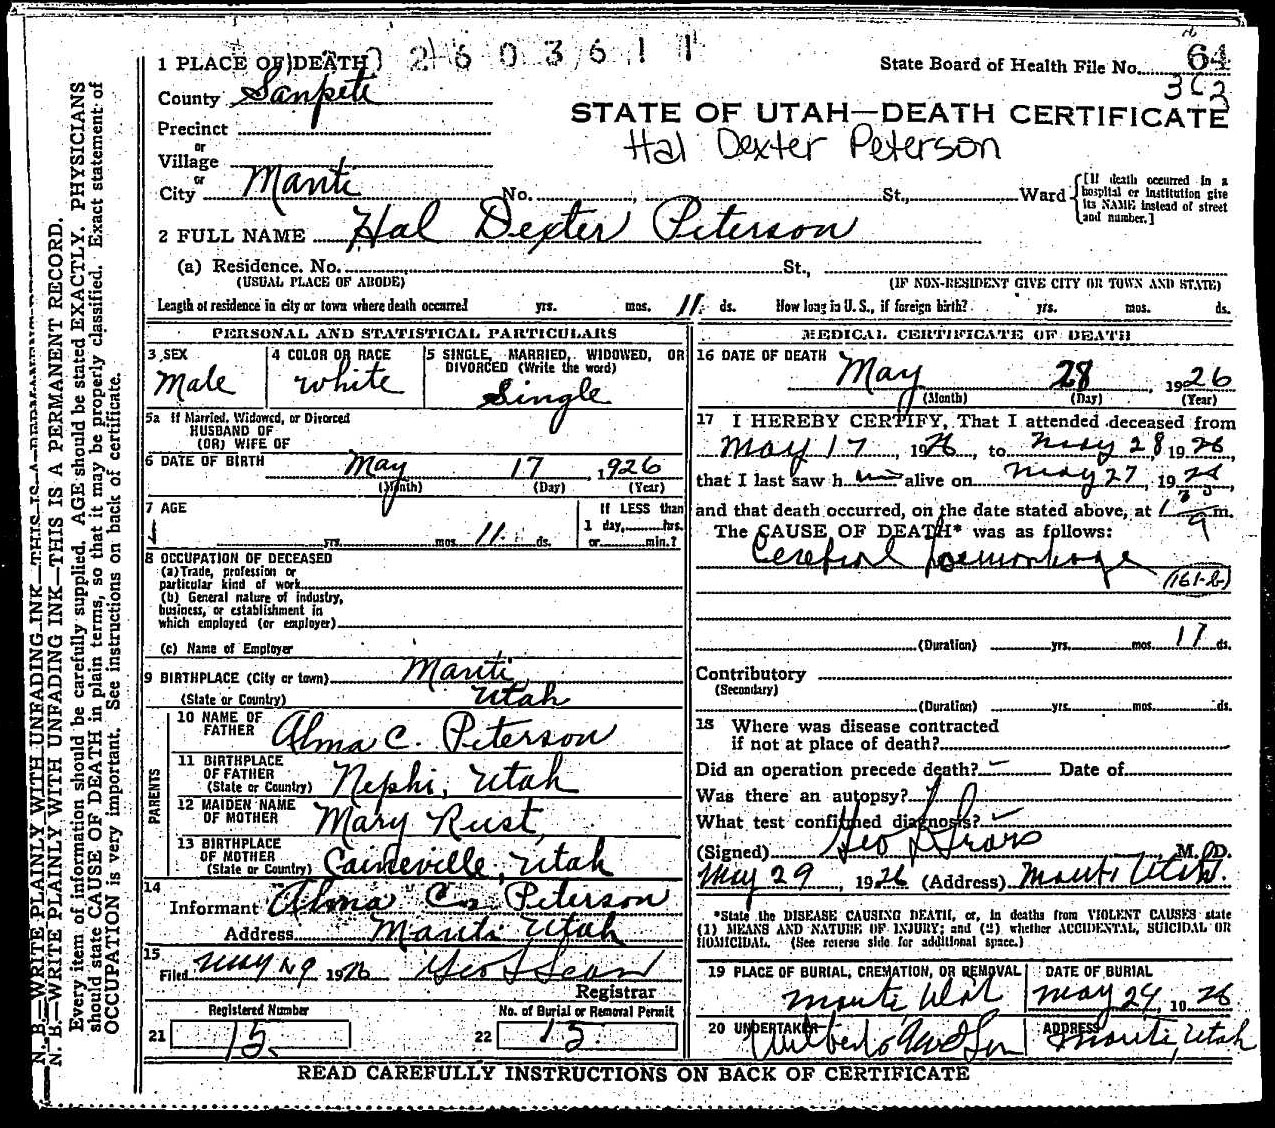 2603611
1 PLACE OF DEATH
State Board of Health File No. 64
363
County Sanpete
STATE OF UTAH—DEATH CERTIFICATE
Precinct
or
Hal Dexter Peterson
Village
or
City Manti No. St., Ward [If death occurred in a hospital or institution give its NAME instead of street and number.]
2 FULL NAME Hal Dexter Peterson
(a) Residence. No. St.,
(USUAL PLACE OF ABODE) (IF NON-RESIDENT GIVE CITY OR TOWN AND STATE)
Length of residence in city or town where death occurred yrs. mos. 11 ds. How long in U. S., if foreign birth? yrs. mos. ds.
PERSONAL AND STATISTICAL PARTICULARS
3 SEX 4 COLOR OR RACE 5 SINGLE, MARRIED, WIDOWED, OR DIVORCED (Write the word)
Male White Single
5a If Married, Widowed, or Divorced
HUSBAND OF
(OR) WIFE OF
6 DATE OF BIRTH May 17, 1926
(Month) (Day) (Year)
7 AGE If LESS than
1 day, hrs.
yrs. mos. 11 ds. or min.?
8 OCCUPATION OF DECEASED
(a) Trade, profession or
particular kind of work
(b) General nature of industry,
business, or establishment in
which employed (or employer)
(c) Name of Employer
9 BIRTHPLACE (City or town) Manti
(State or Country) Utah
PARENTS
10 NAME OF FATHER Alma C. Peterson
11 BIRTHPLACE OF FATHER (State or Country) Nephi, Utah
12 MAIDEN NAME OF MOTHER Mary Rust
13 BIRTHPLACE OF MOTHER (State or Country) Caineville, Utah
14
Informant Alma C. Peterson
Address Manti Utah
15
Filed May 29 1926
Registrar
Registered Number No. of Burial or Removal Permit
21 15 22 15
MEDICAL CERTIFICATE OF DEATH
16 DATE OF DEATH May 28 1926
(Month) (Day) (Year)
17 I HEREBY CERTIFY, That I attended deceased from
May 17, 1926, to May 28 1926,
that I last saw him alive on May 27, 1926,
and that death occurred, on the date stated above, at m.
The CAUSE OF DEATH* was as follows:
Cerebral hemorrhage
(161-b)
(Duration) yrs. mos. 17 ds.
Contributory
(Secondary)
(Duration) yrs. mos. ds.
18 Where was disease contracted
if not at place of death?
Did an operation precede death? Date of
Was there an autopsy?
What test confirmed diagnosis?
(Signed) Geo M. D.
May 29, 1926 (Address) Manti Utah.
*State the DISEASE CAUSING DEATH, or, in deaths from VIOLENT CAUSES state
(1) MEANS AND NATURE OF INJURY; and (2) whether ACCIDENTAL, SUICIDAL OR
HOMICIDAL. (See reverse side for additional space.)
19 PLACE OF BURIAL, CREMATION, OR REMOVAL DATE OF BURIAL
Manti Utah May 29, 1926
20 UNDERTAKER ADDRESS
Manti, Utah
READ CAREFULLY INSTRUCTIONS ON BACK OF CERTIFICATE
N. B.—WRITE PLAINLY WITH UNFADING INK—THIS IS A PERMANENT RECORD.
N. B.—WRITE PLAINLY WITH UNFADING INK—THIS IS A PERMANENT RECORD.
Every item of information should be carefully supplied. AGE should be stated EXACTLY. PHYSICIANS
should state CAUSE OF DEATH in plain terms, so that it may be properly classified. Exact statement of
OCCUPATION is very important. See instructions on back of certificate.